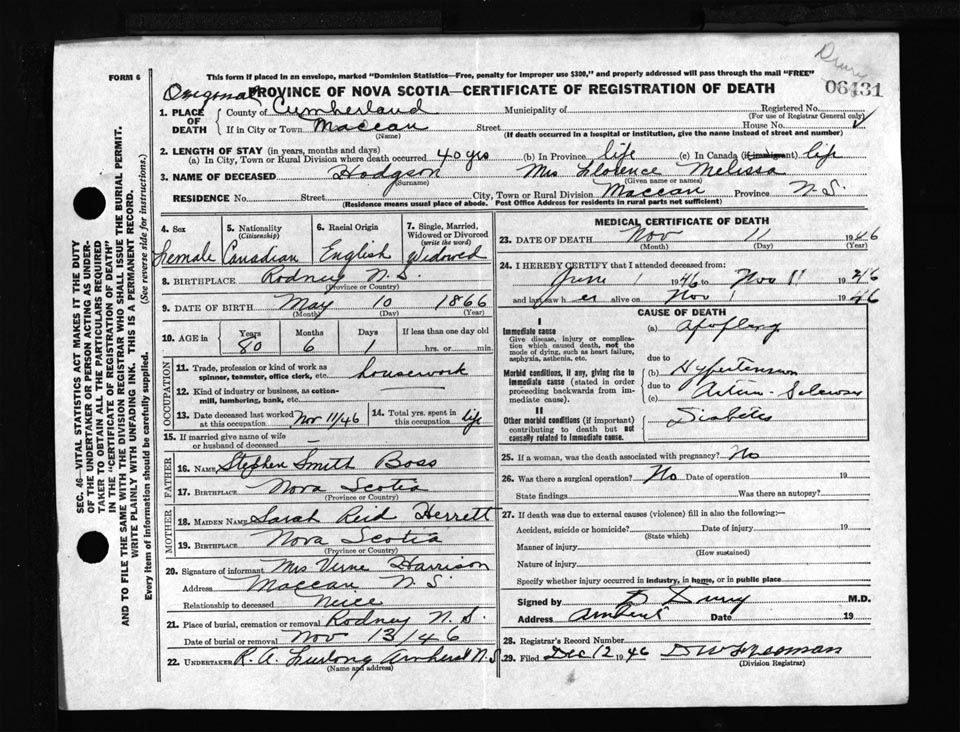 Drury
FORM 6
This form if placed in an envelope, marked "Dominion Statistics—Free, penalty for improper use $300," and properly addressed will pass through the mail "FREE"
06431
Original PROVINCE OF NOVA SCOTIA—CERTIFICATE OF REGISTRATION OF DEATH
1. PLACE OF DEATH { County of Cumberland Municipality of Registered No.
(For use of Registrar General only)
If in City or Town Maccan Street House No. ✓
(Name) (If death occurred in a hospital or institution, give the name instead of street and number)
2. LENGTH OF STAY (in years, months and days)
(a) In City, Town or Rural Division where death occurred 40 yrs (b) In Province life (c) In Canada (if immigrant) life
3. NAME OF DECEASED Hodgson Mrs Florence Melissa
(Surname) (Given name or names)
RESIDENCE No. Street City, Town or Rural Division Maccan Province N.S.
(Residence means usual place of abode. Post Office Address for residents in rural parts not sufficient)
4. Sex 5. Nationality (Citizenship) 6. Racial Origin 7. Single, Married, Widowed or Divorced (write the word)
Female Canadian English Widowed
8. BIRTHPLACE Rodney N.S.
(Province or Country)
9. DATE OF BIRTH May 10 1866
(Month) (Day) (Year)
10. AGE in Years Months Days If less than one day old
80 6 1 hrs. or min.
OCCUPATION
11. Trade, profession or kind of work as spinner, teamster, office clerk, etc. housework
12. Kind of industry or business, as cotton-mill, lumbering, bank, etc. —
13. Date deceased last worked at this occupation Nov 11/46 14. Total yrs. spent in this occupation life
15. If married give name of wife or husband of deceased —
FATHER
16. Name Stephen Smith Boss
17. Birthplace Nova Scotia
(Province or Country)
MOTHER
18. Maiden Name Sarah Reid Herrett
19. Birthplace Nova Scotia
(Province or Country)
20. Signature of informant Mrs Verne Harrison
Address Maccan N.S.
Relationship to deceased Niece
21. Place of burial, cremation or removal Rodney N.S.
Date of burial or removal Nov 13/46
22. Undertaker R.A. Furlong Amherst N.S.
(Name and address)
MEDICAL CERTIFICATE OF DEATH
23. DATE OF DEATH Nov 11 1946
(Month) (Day) (Year)
24. I HEREBY CERTIFY that I attended deceased from:
June 1 1946 to Nov 11 1946
and last saw h er alive on Nov 1 1946
CAUSE OF DEATH
I
Immediate cause (a) apoplexy
Give disease, injury or complication which caused death, not the mode of dying, such as heart failure, asphyxia, asthenia, etc.
due to
Morbid conditions, if any, giving rise to immediate cause (stated in order proceeding backwards from immediate cause).
(b) Hypertension
due to
(c) Arterio-Sclerosis
II
Other morbid conditions (if important) contributing to death but not causally related to immediate cause.
Diabetes
25. If a woman, was the death associated with pregnancy? No
26. Was there a surgical operation? No Date of operation 19
State findings Was there an autopsy?
27. If death was due to external causes (violence) fill in also the following:—
Accident, suicide or homicide? Date of injury 19
(State which)
Manner of injury
(How sustained)
Nature of injury
Specify whether injury occurred in industry, in home, or in public place
Signed by D Drury M.D.
Address Amherst Date 19
28. Registrar's Record Number
29. Filed Dec 12 1946
(Division Registrar)
SEC. 46—VITAL STATISTICS ACT MAKES IT THE DUTY
OF THE UNDERTAKER OR PERSON ACTING AS UNDER-
TAKER TO OBTAIN ALL THE PARTICULARS REQUIRED
IN THE "CERTIFICATE OF REGISTRATION OF DEATH"
AND TO FILE THE SAME WITH THE DIVISION REGISTRAR WHO SHALL ISSUE THE BURIAL PERMIT.
WRITE PLAINLY WITH UNFADING INK. THIS IS A PERMANENT RECORD.
Every item of information should be carefully supplied. (See reverse side for instructions.)